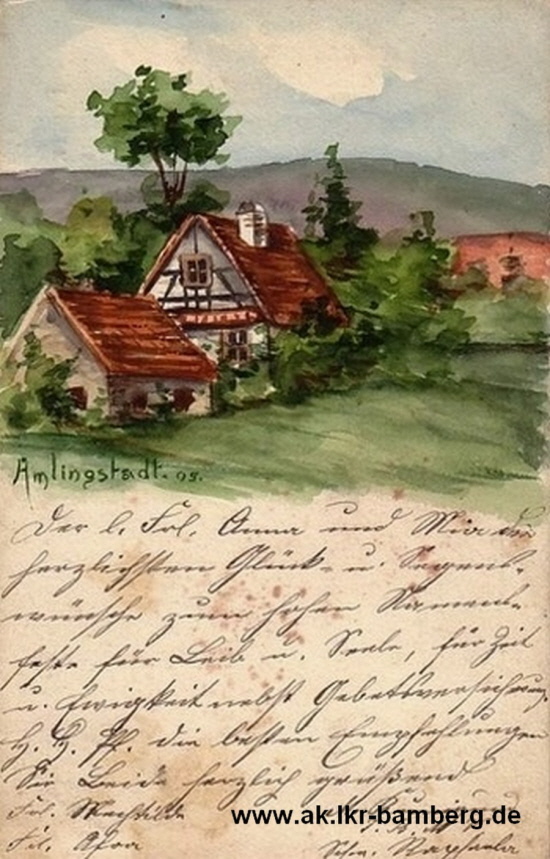 Amlingstadt. 05.
Der l. Frl. Anna und Mia die
herzlichsten Glück- u. Segens-
wünsche zum hohen Namens-
feste für Leib u. Seele, für Zeit
u. Ewigkeit nebst Gebetsversicherung.
H. H. Pf. die besten Empfehlungen
Sie Beide herzlich grüßend
Frl. Mechtilde
www.ak.lkr-bamberg.de
Frl. Afra
Schw. Raphaela